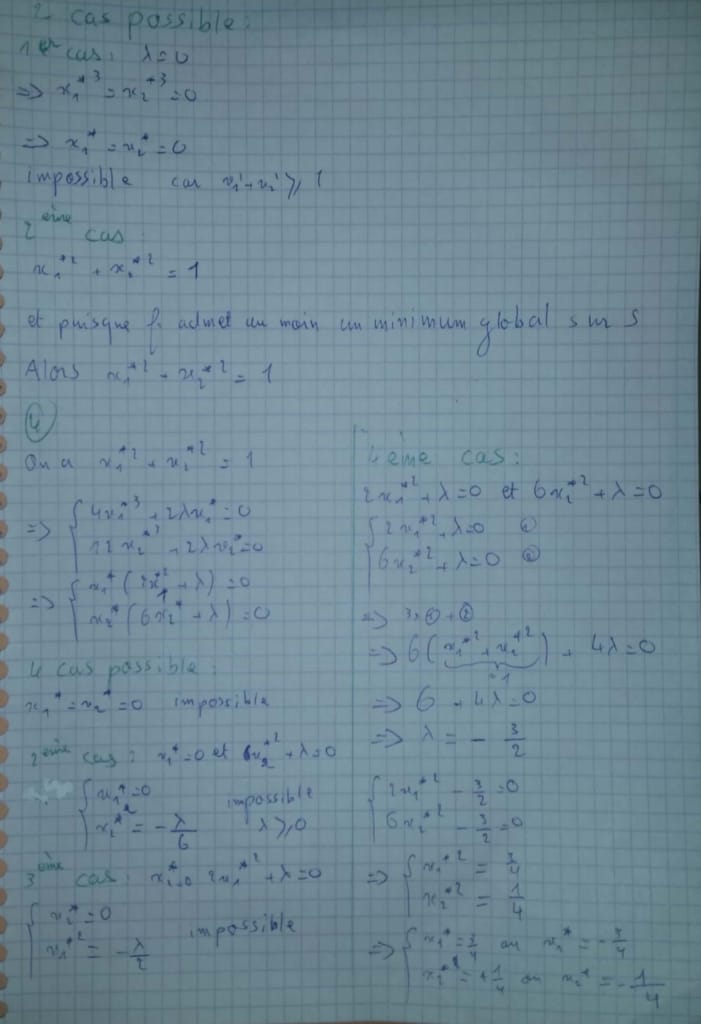 2 cas possible:
1er cas: λ=0
=> x₁*³ = x₂*³ = 0
=> x₁* = x₂* = 0
impossible car x₁² + x₂² ≥ 1
2ème cas
x₁*² + x₂*² = 1
et puisque f admet au moin un minimum global sur S
Alors x₁*² + x₂*² = 1
4
On a x₁*² + x₂*² = 1
=> { 4x₁*³ + 2λx₁* = 0
12x₂*³ + 2λx₂* = 0
=> { x₁* (2x₁*² + λ) = 0
x₂* (6x₂*² + λ) = 0
4 cas possible:
x₁* = x₂* = 0 impossible
2ème cas: x₁* = 0 et 6x₂*² + λ = 0
{ x₁* = 0 impossible
x₂*² = -λ/6 λ ≥ 0
3ème cas: x₂* = 0 2x₁*² + λ = 0
{ x₂* = 0
x₁*² = -λ/2 impossible
4ème cas:
2x₁*² + λ = 0 et 6x₂*² + λ = 0
{ 2x₁*² + λ = 0 ①
6x₂*² + λ = 0 ②
=> 3×① + ②
=> 6(x₁*² + x₂*²) + 4λ = 0
= 1
=> 6 + 4λ = 0
=> λ = -3/2
{ 2x₁*² - 3/2 = 0
6x₂*² - 3/2 = 0
=> { x₁*² = 3/4
x₂*² = 1/4
=> { x₁* = 3/4 ou x₁* = -3/4
x₂* = +1/4 ou x₂* = -1/4